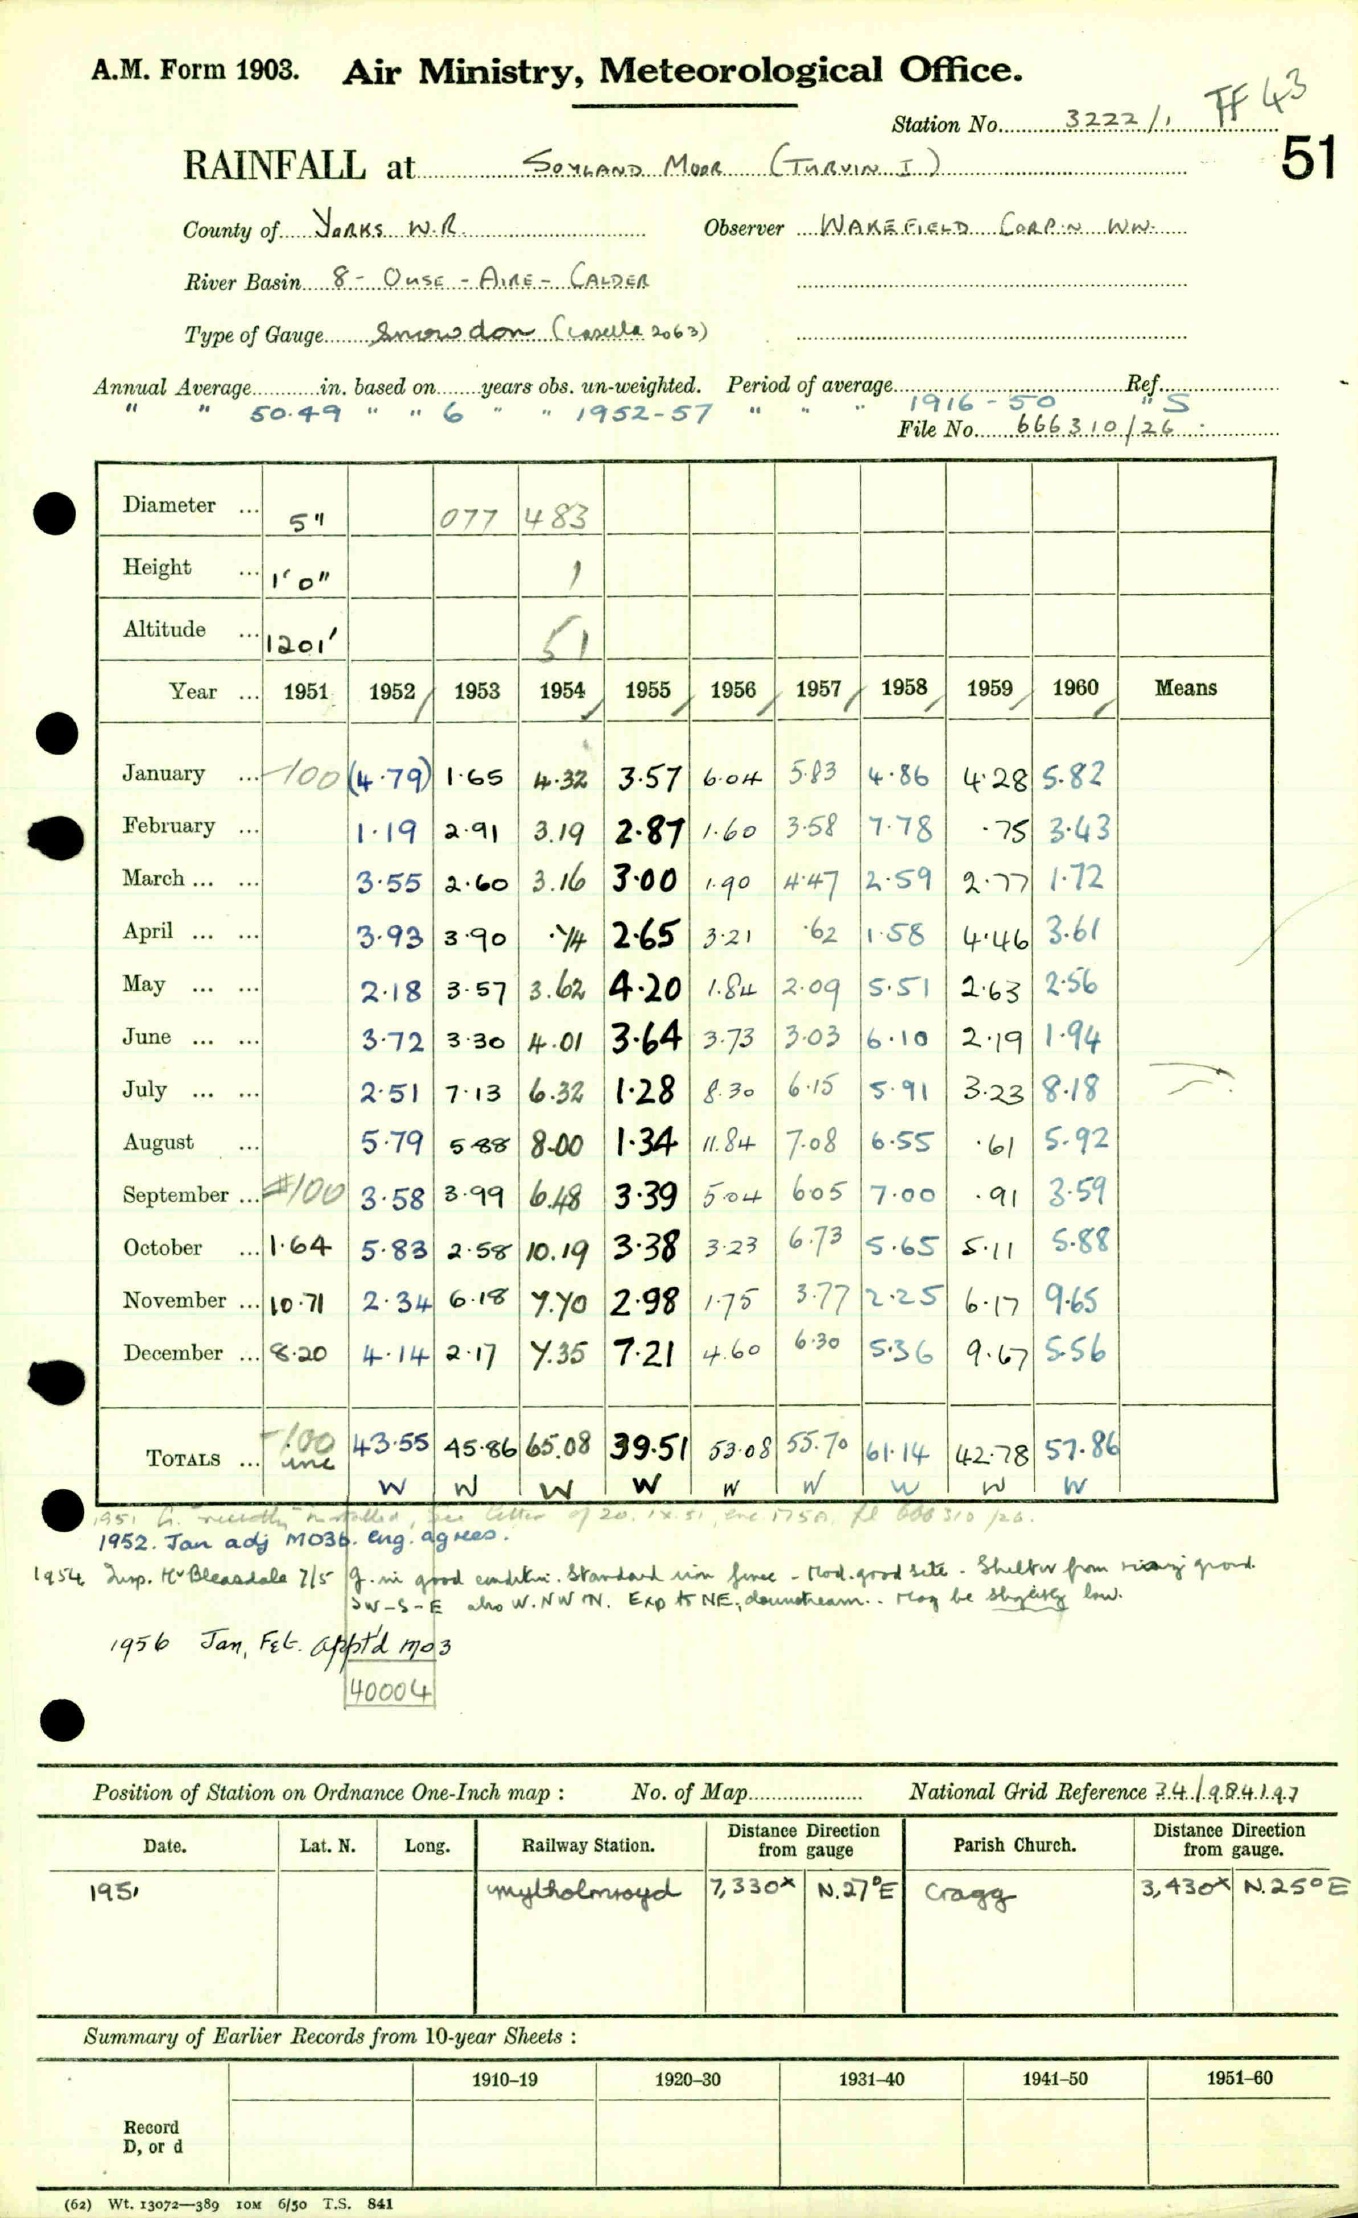 A.M. Form 1903. Air Ministry, Meteorological Office.
Station No. 3222/1 TF 43
51
RAINFALL at SOYLAND MOOR (TURVIN I)
County of YORKS W.R. Observer WAKEFIELD CORP'N WW.
River Basin 8 - OUSE - AIRE - CALDER
Type of Gauge Snowdon (Casella 2063)
Annual Average in. based on years obs. un-weighted. Period of average Ref.
" " 50.49 " " 6 " " 1952-57 " " " 1916-50 " S
File No. 666310/26
Diameter ... 5" 077 483
Height ... 1'0" 1
Altitude ... 1201' 51
Year ... 1951 1952 1953 1954 1955 1956 1957 1958 1959 1960 Means
January ... -100 (4.79) 1.65 4.32 3.57 6.04 5.83 4.86 4.28 5.82
February ... 1.19 2.91 3.19 2.87 1.60 3.58 7.78 .75 3.43
March ... ... 3.55 2.60 3.16 3.00 1.90 4.47 2.59 2.77 1.72
April ... ... 3.93 3.90 .74 2.65 3.21 .62 1.58 4.46 3.61
May ... ... 2.18 3.57 3.62 4.20 1.84 2.09 5.51 2.63 2.56
June ... ... 3.72 3.30 4.01 3.64 3.73 3.03 6.10 2.19 1.94
July ... ... 2.51 7.13 6.32 1.28 8.30 6.15 5.91 3.23 8.18
August ... 5.79 5.88 8.00 1.34 11.84 7.08 6.55 .61 5.92
September ... 100 3.58 3.99 6.48 3.39 5.04 6.05 7.00 .91 3.59
October ... 1.64 5.83 2.58 10.19 3.38 3.23 6.73 5.65 5.11 5.88
November ... 10.71 2.34 6.18 7.70 2.98 1.75 3.77 2.25 6.17 9.65
December ... 8.20 4.14 2.17 7.35 7.21 4.60 6.30 5.36 9.67 5.56
TOTALS ... -100 43.55 45.86 65.08 39.51 53.08 55.70 61.14 42.78 57.86
inc W W W W W W W W W
1951 G. "recently" installed, see letter of 20.IX.51, enc 175A, fl 666310/26.
1952. Jan adj MO3b. eng. agrees.
1954 Insp. Mr Bleasdale 7/5 G. in good condition. Standard iron fence - Mod. good site - Shelter from rising ground
SW-S-E also W.NW N. Exp to NE, downstream.. May be slightly low.
1956 Jan, Feb. appt'd MO3
40004
Position of Station on Ordnance One-Inch map : No. of Map National Grid Reference 34/984197
Date. Lat. N. Long. Railway Station. Distance from gauge Direction Parish Church. Distance from gauge. Direction
1951 Mytholmroyd 7,330x N.27°E Cragg 3,430x N.25°E
Summary of Earlier Records from 10-year Sheets :
1910–19 1920–30 1931–40 1941–50 1951–60
Record
D, or d
(62) Wt. 13072—389 10M 6/50 T.S. 841